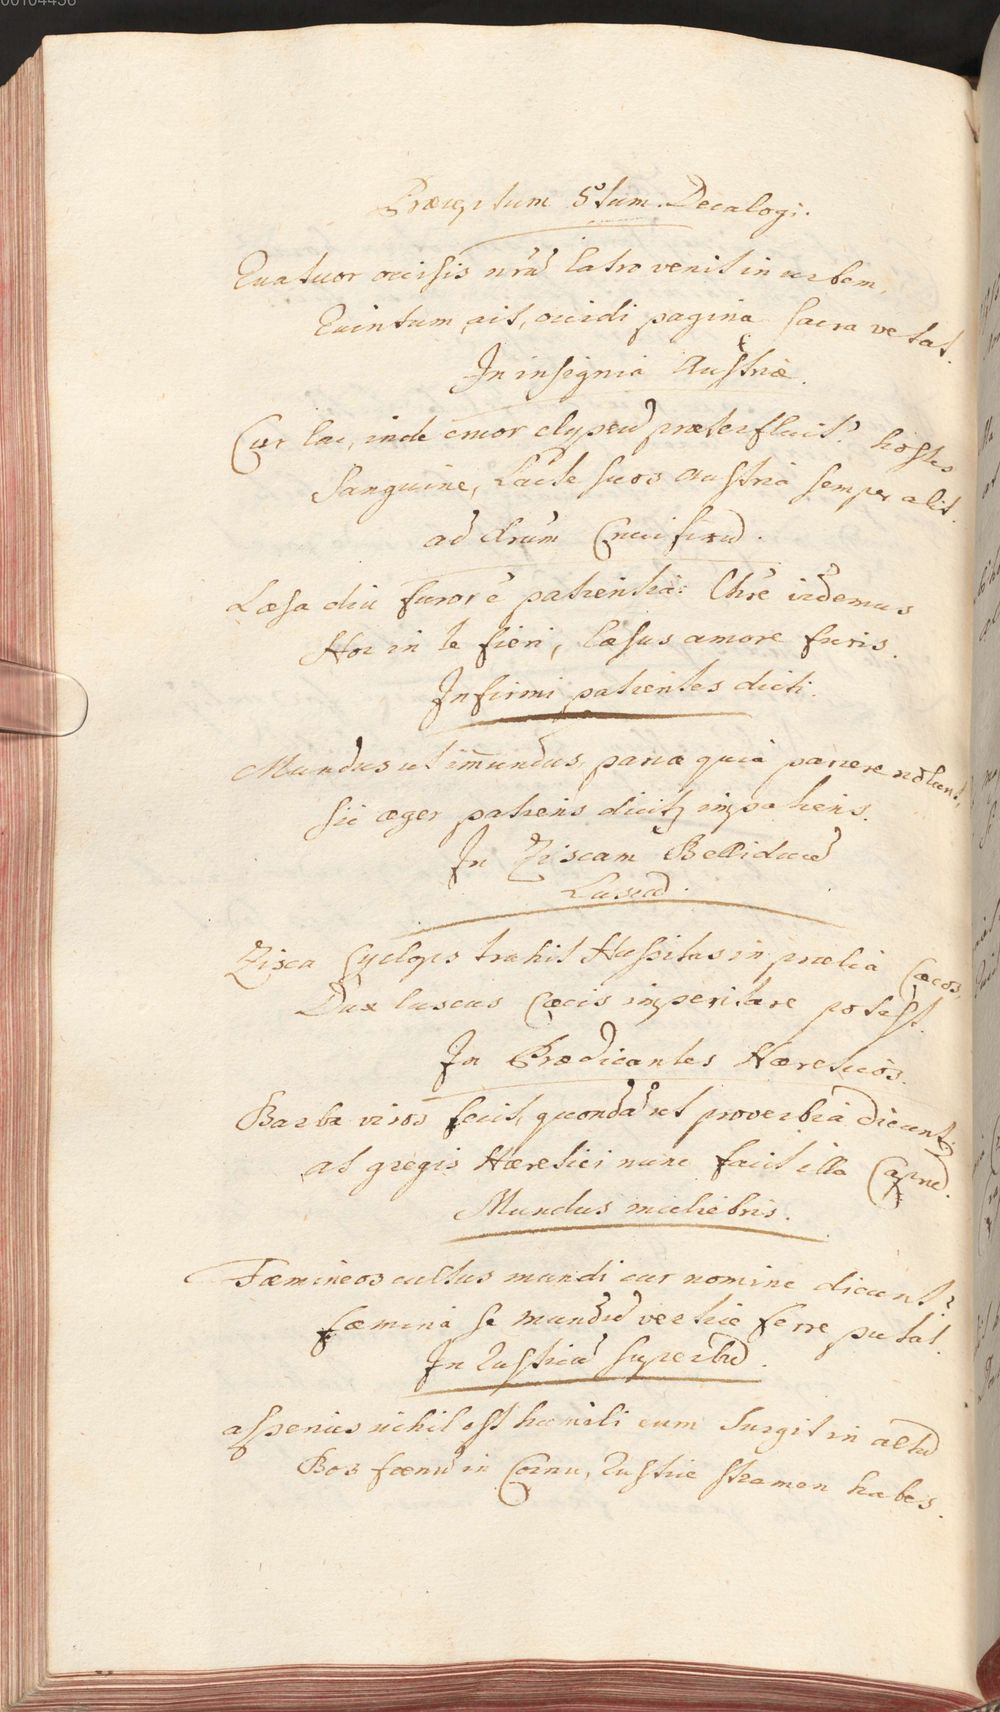 00104436
Præceptum 5tum. Decalogi.
Quatuor occisis nrã latro venit in urbem,
Quintum, ait, occidi pagina sacra vetat.
In insignia Austriæ.
Cur lac, inde cruor clypeũ præterfluit? hostes
Sanguine, Lacte suos Austria semper alit.
ad Xrum Crucifixũ.
Læsa diu furor ẽ patientia: Chrẽ videmus
Hoc in te fieri, læsus amore furis.
Infirmi patientes dicti.
Mundus ut im̃undus, parcæ quia parcere nolunt,
Sic æger patiens dicitur impatiens.
In Ziscam Belliducẽ
Luscũ.
Zisca Cyclops trahit Hussitas in prœlia Cæcos,
Dux luscus Cæcis imperitare potest.
In Prædicantes Hæreticos.
Barba viros fecit, quondã ut proverbia dicunt;
at gregis Hæretici nunc facit illa Caprũ.
Mundus muliebris.
Fœmineos cultus mundi cur nomine dicunt?
fœmina se mundũ vertice ferre putat.
In rusticũ superbũ.
asperius nihil est humili cum surgit in altũ
Bos fœnũ in Cornu, rustice stramen habes.